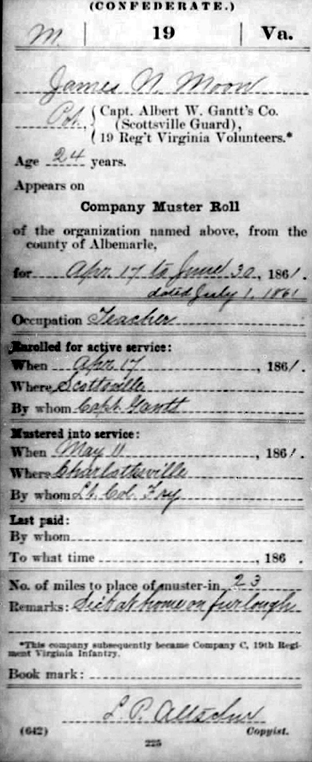 (CONFEDERATE.)
M. 19 Va.
James N. Moon
Pvt., Capt. Albert W. Gantt's Co.
(Scottsville Guard),
19 Reg't Virginia Volunteers.*
Age 24 years.
Appears on
Company Muster Roll
of the organization named above, from the
county of Albemarle,
for Apr 17 to June 30, 1861.
dated July 1, 1861
Occupation Teacher
Enrolled for active service:
When Apr 17, 1861.
Where Scottsville
By whom Capt. Gantt
Mustered into service:
When May 11, 1861.
Where Charlottesville
By whom Lt. Col. Fry
Last paid:
By whom
To what time , 186 .
No. of miles to place of muster-in 23
Remarks: Sick at home on furlough
*This company subsequently became Company C, 19th Regi-
ment Virginia Infantry.
Book mark:
L. P.
(642) Copyist.
225